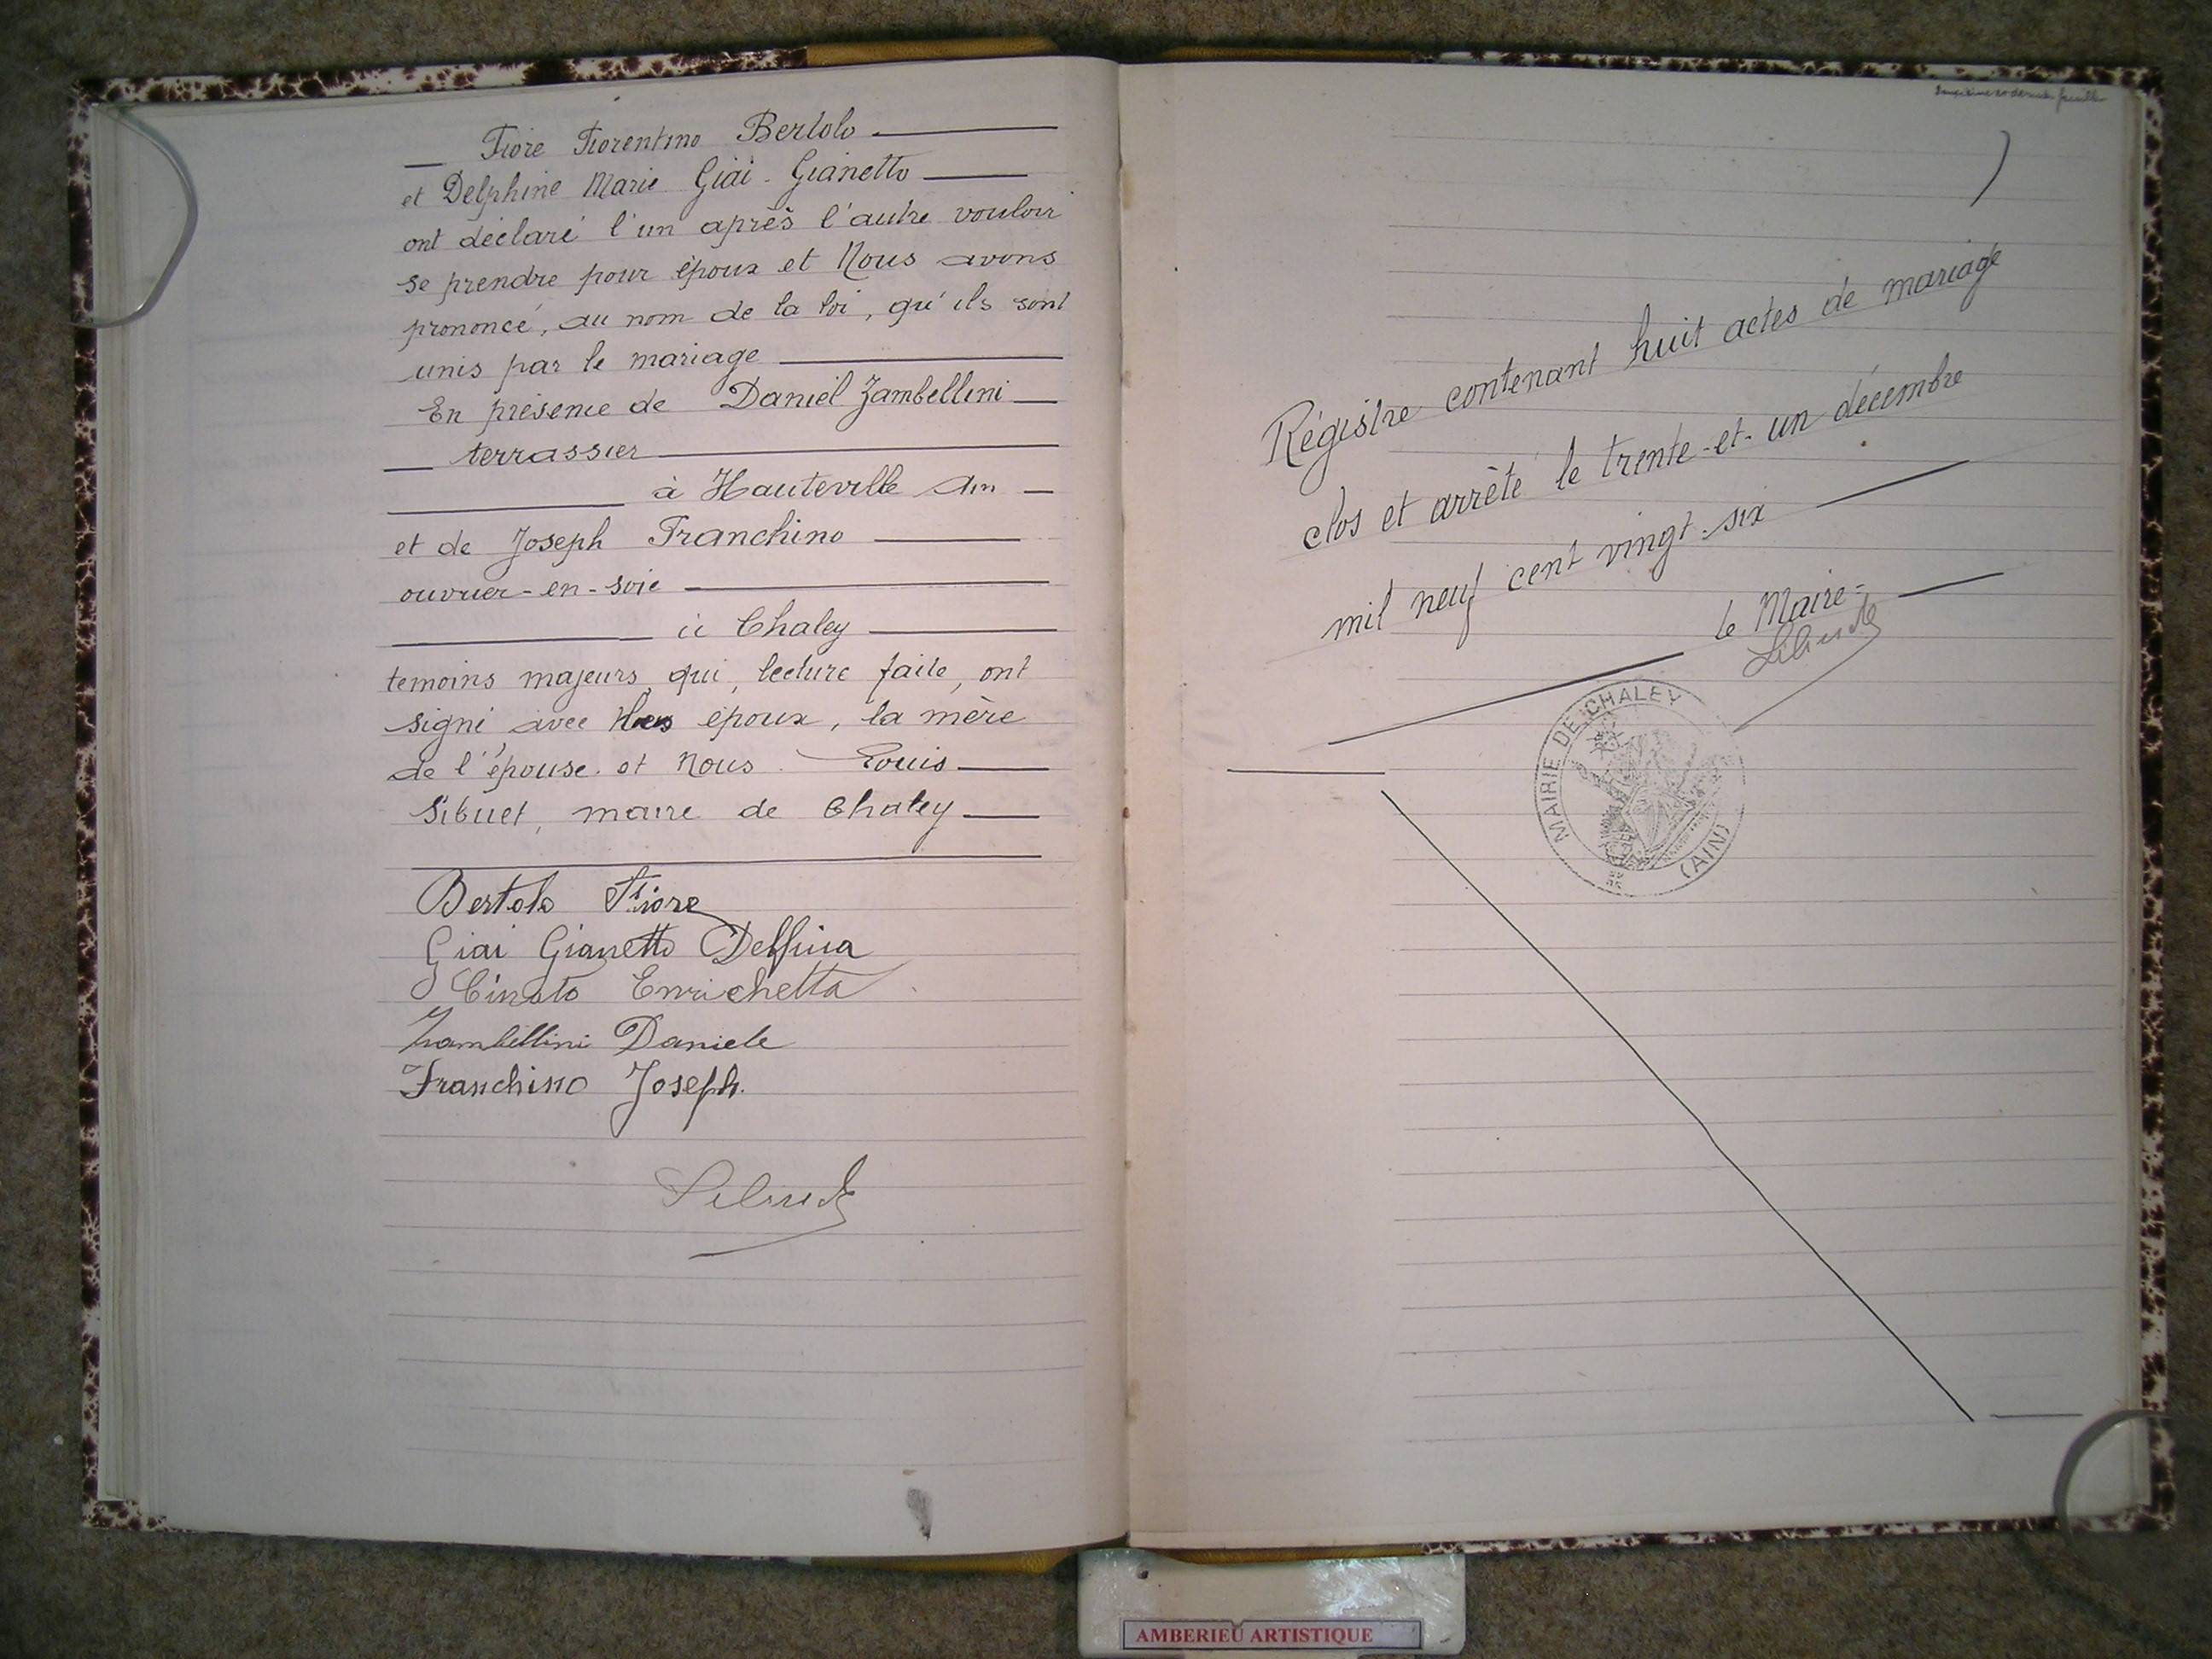 Fiore Fiorentino Bertolo
et Delphine Marie Giai-Gianetto
ont déclaré l'un après l'autre vouloir
se prendre pour époux et Nous avons
prononcé, au nom de la loi, qu'ils sont
unis par le mariage
En présence de Daniel Zambellini
terrassier
à Hauteville Ain
et de Joseph Franchino
ouvrier-en-soie
à Chaley
temoins majeurs, qui, lecture faite, ont
signé avec les époux, la mère
de l'épouse et Nous Louis
Sibuet, maire de Chaley
Bertolo Fiore
Giai Gianetto Delfina
Cinato Enrichetta
Zambellini Daniele
Franchino Joseph.
Sibuet
feuille
Régistre contenant huit actes de mariage
clos et arrêté le trente-et-un décembre
mil neuf cent vingt-six
le Maire
Sibuet
MAIRIE DE CHALEY
(AIN)
AMBERIEU ARTISTIQUE